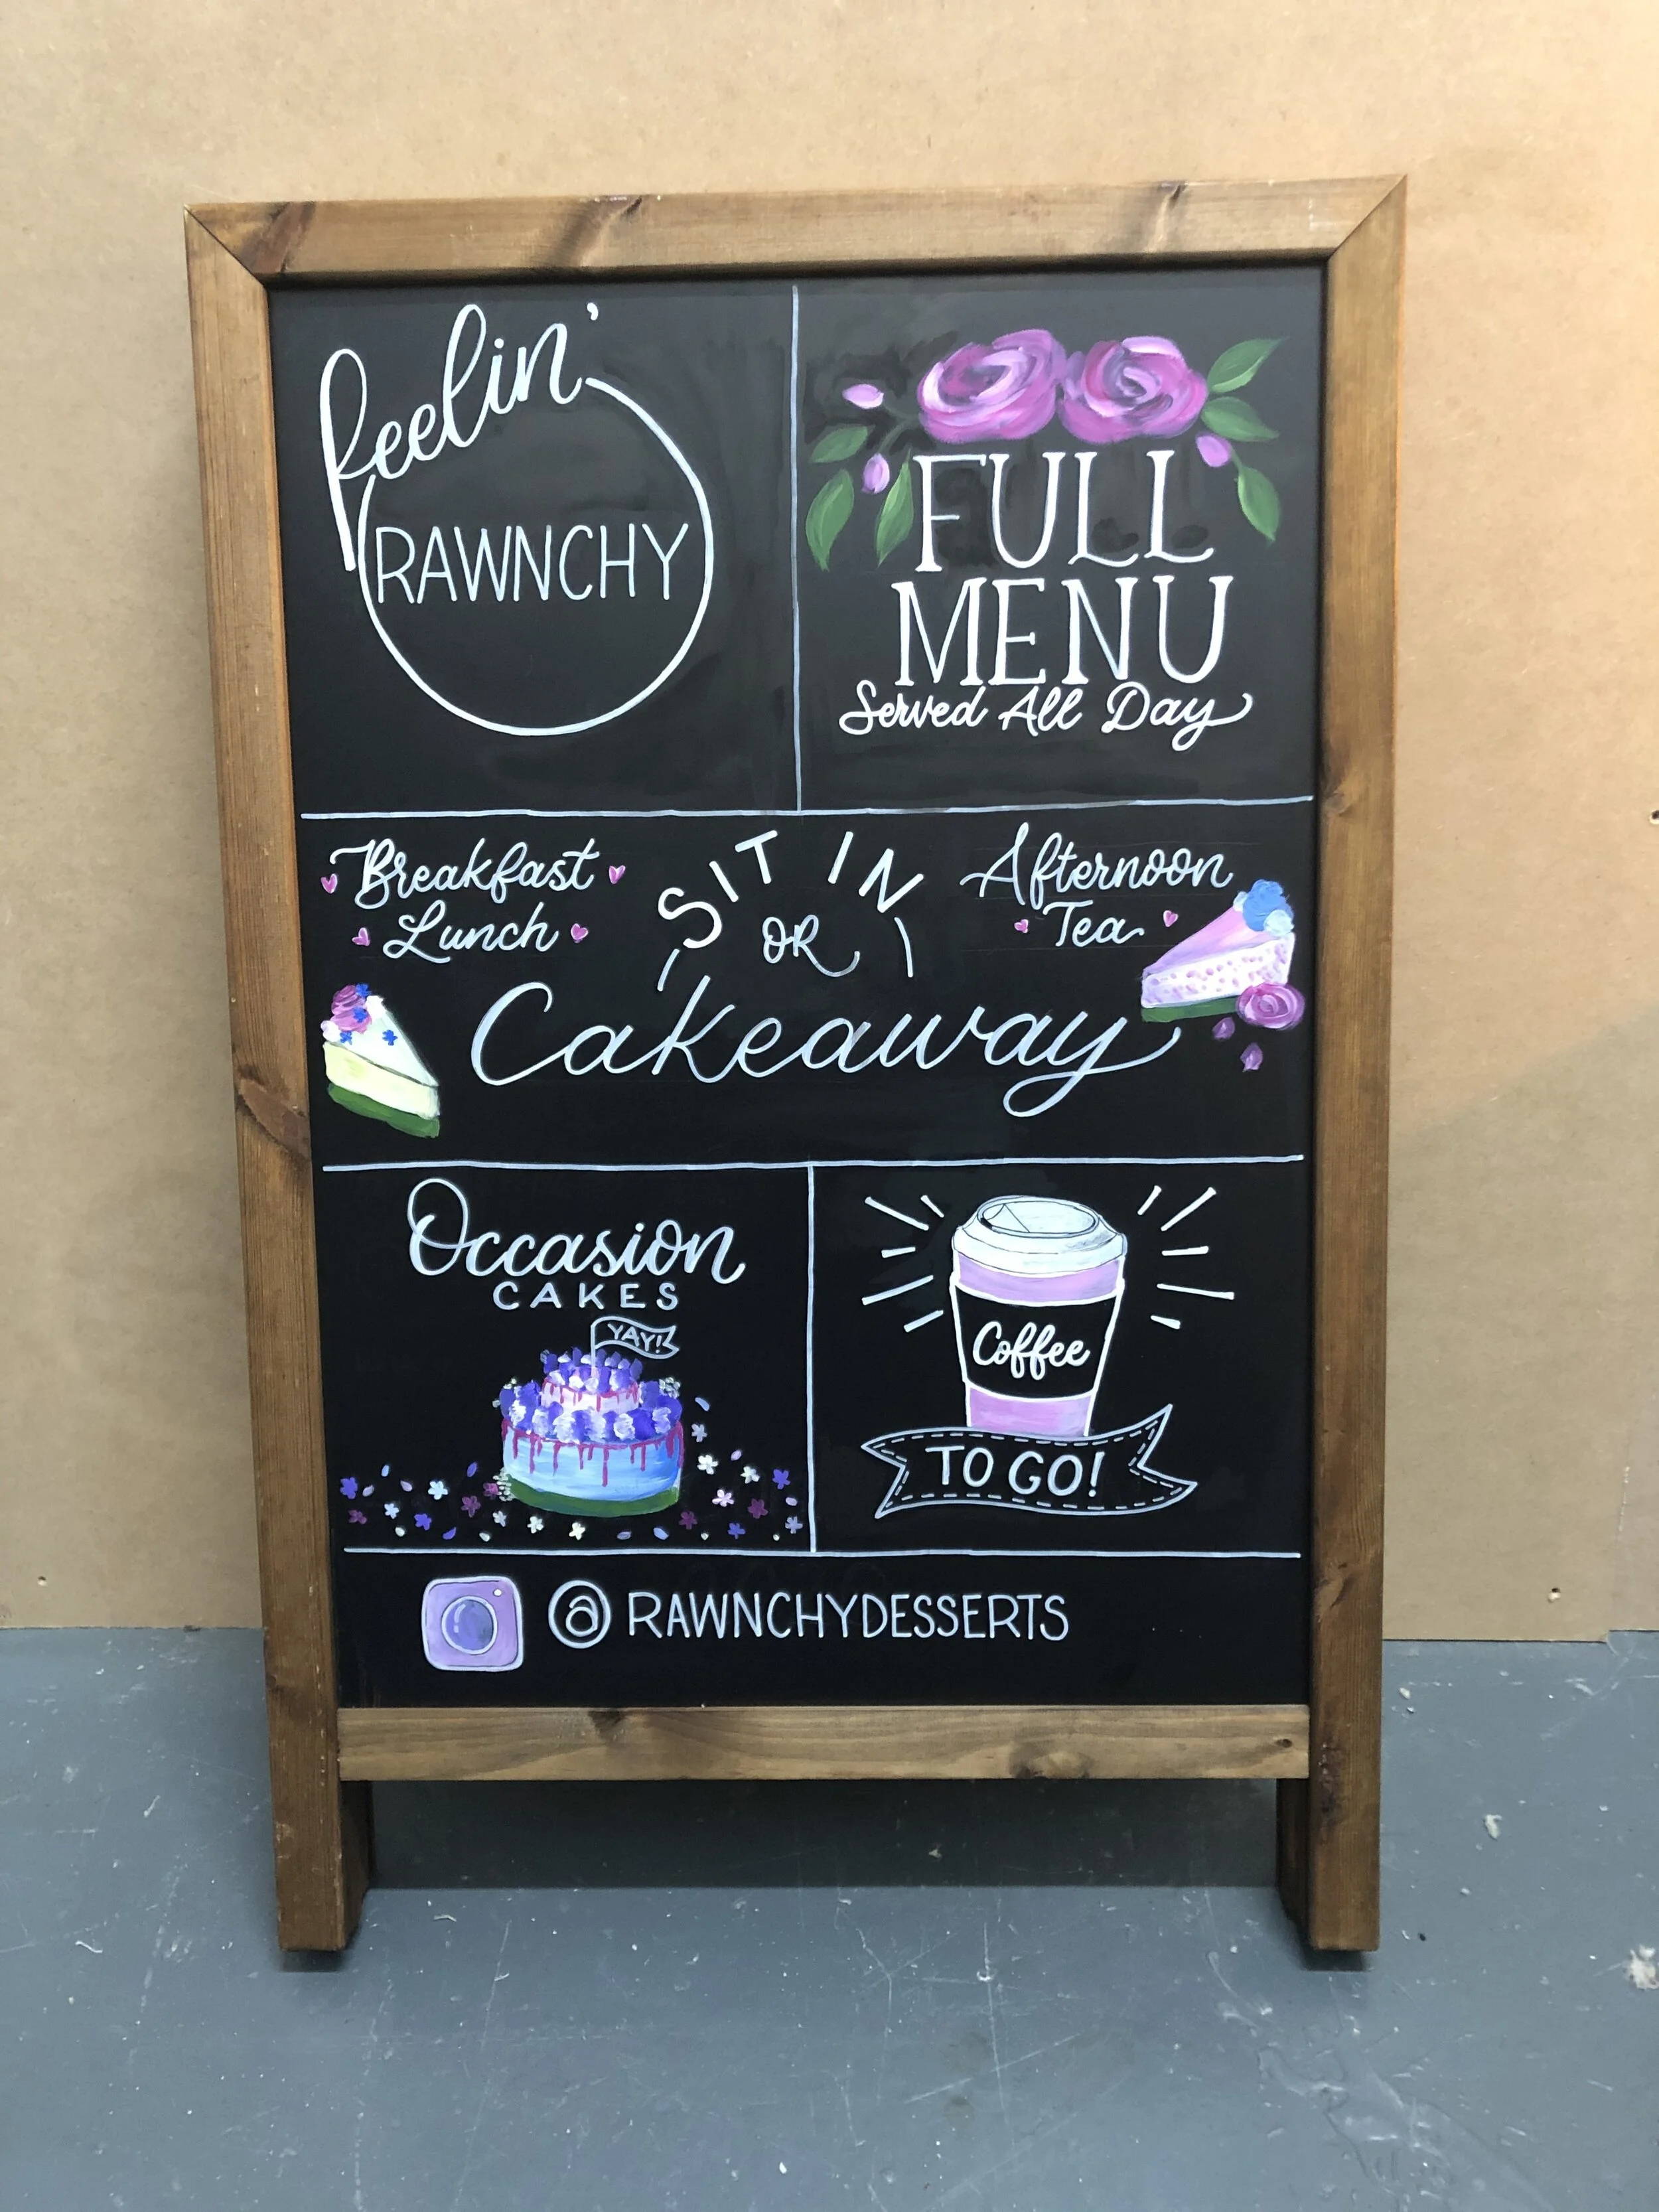 feelin'
RAWNCHY
FULL
MENU
Served All Day
Breakfast
Lunch
SIT IN
OR
Cakeaway
Afternoon
Tea
Occasion
CAKES
YAY!
Coffee
TO GO!
@ RAWNCHYDESSERTS